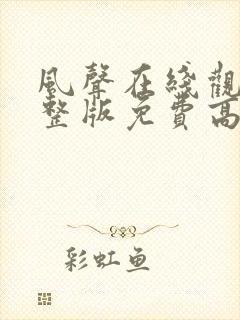 風聲在綫觀
整版免費高
彩虹鱼